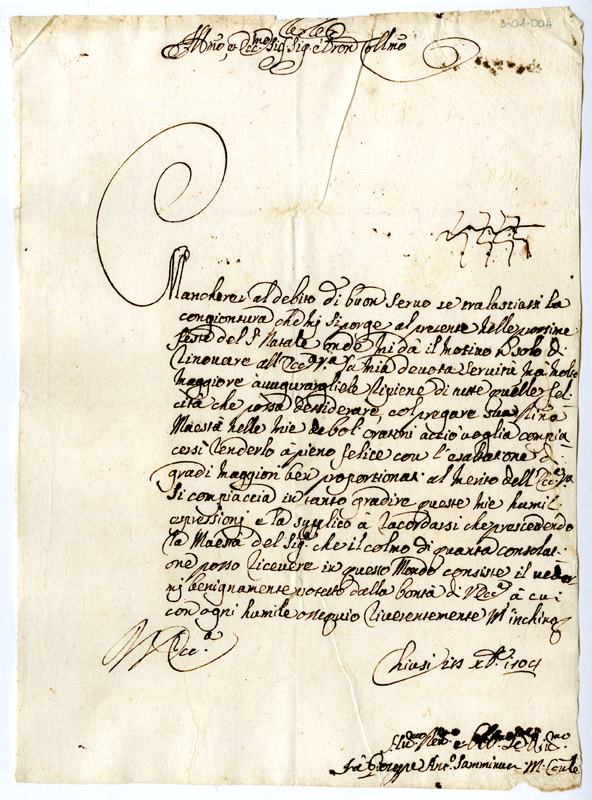 3-01-004
Ill.mo, et Ecc.mo Sig. Sig. e Pron Coll.mo
Mancherei al debito di buon servo se tralasciassi la
congiontura che mi si porge al presente nelle prossime
feste del S. Natale onde mi dà il motivo non solo di
rinovare all' Ecc.a V.a la mia devota servitù ma molto
maggiore auguragliele ripiene di tutte quelle feli
cità che possa dessiderare col pregare sua Divina
Maestà nelle mie deboli orationi acciò voglia compia
cersi renderlo a pieno felice con l'esaltatione di
gradi maggiori ben proportionati al merito dell' Ecc.a V.a
Si compiaccia in tanto gradire queste mie humili
espressioni e la supplico à racordarsi che prescedendo
la Maestà del Sig.e che il colmo di quanta consolati
one posso ricevere in questo Mondo consiste il veder
mi benignamente protetto dalla bontà di V. Ecc.a à cui
con ogni humile ossequio riverentemente m'inchino
V. Ecc.a
Chiusi li xbre 1704
Hu.mo Dev.mo e Obb. Se
Fra Giuseppe Ant.o Samminucci M. Conle